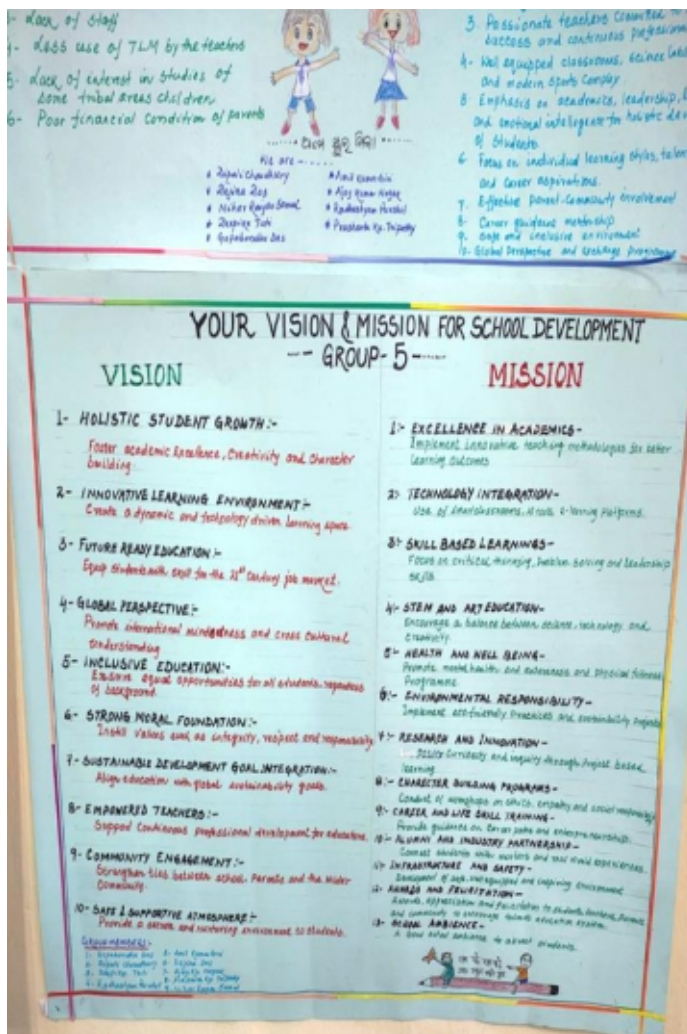 - Lack of staff
4- Less use of TLM by the teachers
5- Lack of interest in studies of
some tribal areas children
6- Poor financial condition of parents
We are -----
3. Passionate teachers
success and continuous
4- Well equipped classrooms, science
and modern sports complex
Emphasis on academics, leadership,
and emotional intelegence for holistic
of students
6 Focus on individual learning styles,
and career aspirations.
7. Effective Parent-Community involvement
8- Career guidance mentorship
9. Safe and inclusive environment
10- Global Perspective and
YOUR VISION & MISSION FOR SCHOOL DEVELOPMENT
--- GROUP-5 ----
VISION
1- HOLISTIC STUDENT GROWTH:-
Foster academic Excellence, Creativity and character
building
2- INNOVATIVE LEARNING ENVIRONMENT:-
Create a dynamic and technology driven learning space
3- FUTURE READY EDUCATION:-
Equip students with skill for the 21st Century job market.
4- GLOBAL PERSPECTIVE:-
Promote international mindedness and cross cultural
understanding
5- INCLUSIVE EDUCATION:-
equal opportunities for all students, regardless
of background
6- STRONG MORAL FOUNDATION:-
Instill values such as integrity, respect and responsibility
7- SUSTAINABLE DEVELOPMENT GOAL INTEGRATION:-
Align education with global sustainability goals.
8- EMPOWERED TEACHERS:-
Support continuous professional development for educators.
9- COMMUNITY ENGAGEMENT:-
Strengthen ties between school, Parents and the wider
Community.
10- SAFE & SUPPORTIVE ATMOSPHERE:-
Provide a secure and nurturing environment to students.
GROUP MEMBERS:-
MISSION
1:- EXCELLENCE IN ACADEMICS-
Implement innovative teaching methodologies for better
learning outcomes
2:- TECHNOLOGY INTEGRATION-
Use of
3:- SKILL BASED LEARNINGS-
Focus on critical thinking, Problem solving and leadership
skills
4:- STEM AND ART EDUCATION-
Encourage a balance between science, technology and
creativity.
5:- HEALTH AND WELL BEING-
Promote mental health and awareness and physical fitness
Programme
6:- ENVIRONMENTAL RESPONSIBILITY-
Implement eco-friendly Practices and sustainability Projects
7:- RESEARCH AND INNOVATION-
curiosity and inquiry through Project based
learning
8:- CHARACTER BUILDING PROGRAMS-
Conduct of workshops on ethics, empathy and social responsibility
9:- CAREER AND LIFE SKILL TRAINING-
Provide guidance on career paths and entrepreneurship.
10:- ALUMNI AND INDUSTRY PARTNERSHIP-
Connect students with mentors and real world experiences.
11:- INFRASTRUCTURE AND SAFETY-
Development of safe, well equipped and inspiring environment
12:- AWARD AND FELICITATION-
13:- SCHOOL AMBIENCE-